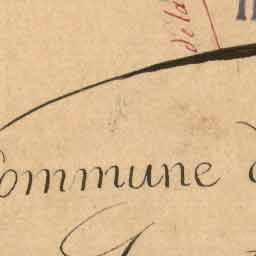 de la
Commune d